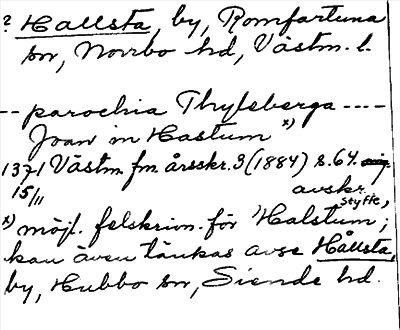 ? Hallsta, by, Romfartuna
sn, Norrbo hd, Västm. l.
-- parochia Thyfsberga ----
Joan in Hastum x)
1371 Västm. fm årsskr. 3 (1884) s. 64.
15/11 avskr. Styffe,
x) möjl. felskrivn. för 'Halstum;
kan även tänkas avse Hållsta,
by, Hubbo sn, Siende hd.